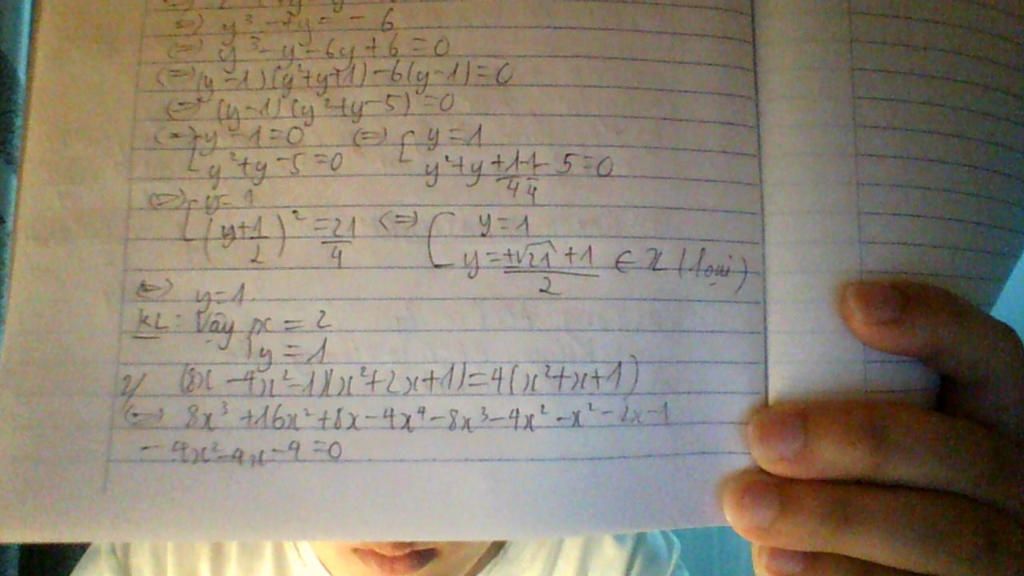 ⇔ y³ - 7y = - 6
⇔ y³ - y² - 6y + 6 = 0
⇔ (y - 1)(y² + y + 1) - 6(y - 1) = 0
⇔ (y - 1)(y² + y - 5) = 0
⇔ [ y - 1 = 0 ⇔ [ y = 1
y² + y - 5 = 0 y² + y + 1/4 - 1/4 - 5 = 0
⇔ [ y = 1
(y + 1/2)² = 21/4 ⇔ [ y = 1
y = (±√21 + 1)/2 ∈ Z (loại)
⇔ y = 1
KL: Vậy { x = 2
y = 1
2/ (8x - 4x² - 1)(x² + 2x + 1) = 4(x² + x + 1)
⇔ 8x³ + 16x² + 8x - 4x⁴ - 8x³ - 4x² - x² - 2x - 1
- 4x² - 4x - 4 = 0